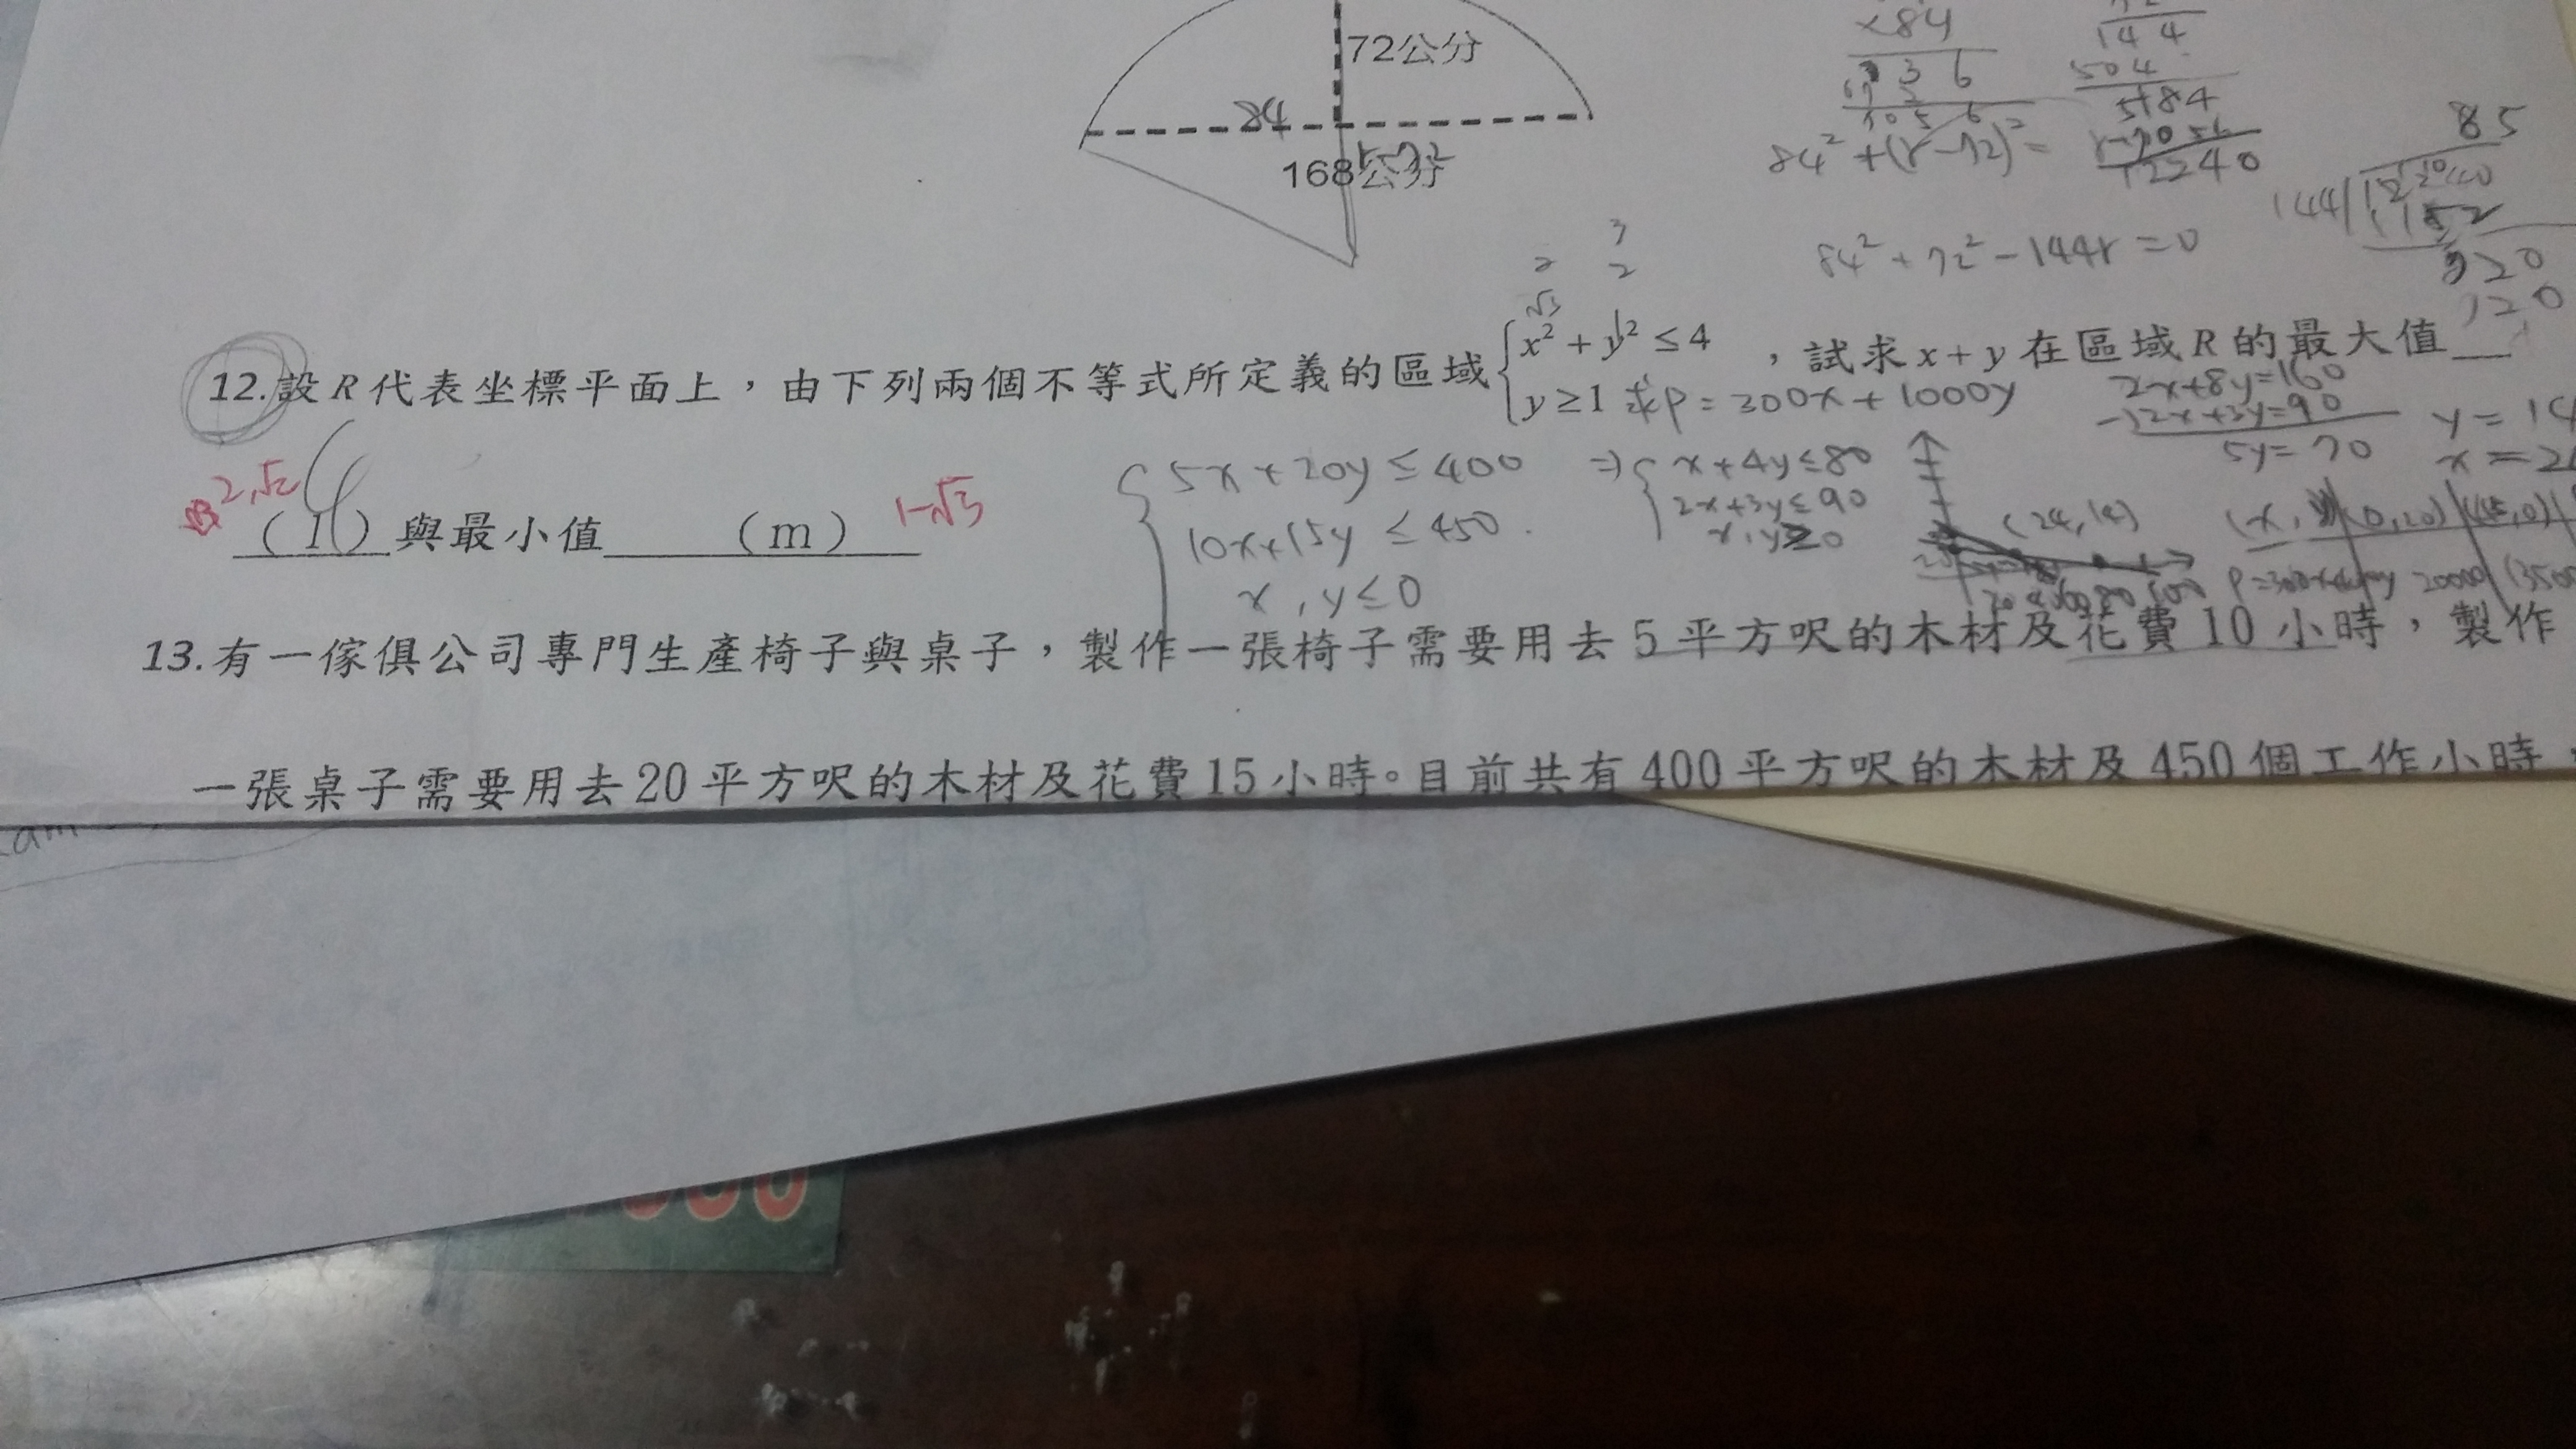 72公分
84
168公分
×84
336
144
504
5184
84² + (r-72)² =
12240
85
84² + 72² - 144r = 0
720
720
12. 設 R 代表坐標平面上，由下列兩個不等式所定義的區域 { x² + y² ≤ 4 ，試求 x + y 在區域 R 的最大值
y ≥ 1 求P = 300x + 1000y
2x+8y=160
-)2x+3y=90
5y=70
2√2
(l) 與最小值 (m) 1-√3
5x + 20y ≤ 400 ⇒ x + 4y ≤ 80
10x+15y ≤ 450
2x+3y ≤ 90
x, y ≤ 0
x, y ≥ 0
(24,14)
13. 有一傢俱公司專門生產椅子與桌子，製作一張椅子需要用去 5 平方呎的木材及花費 10 小時，製作
一張桌子需要用去 20 平方呎的木材及花費 15 小時。目前共有 400 平方呎的木材及 450 個工作小時